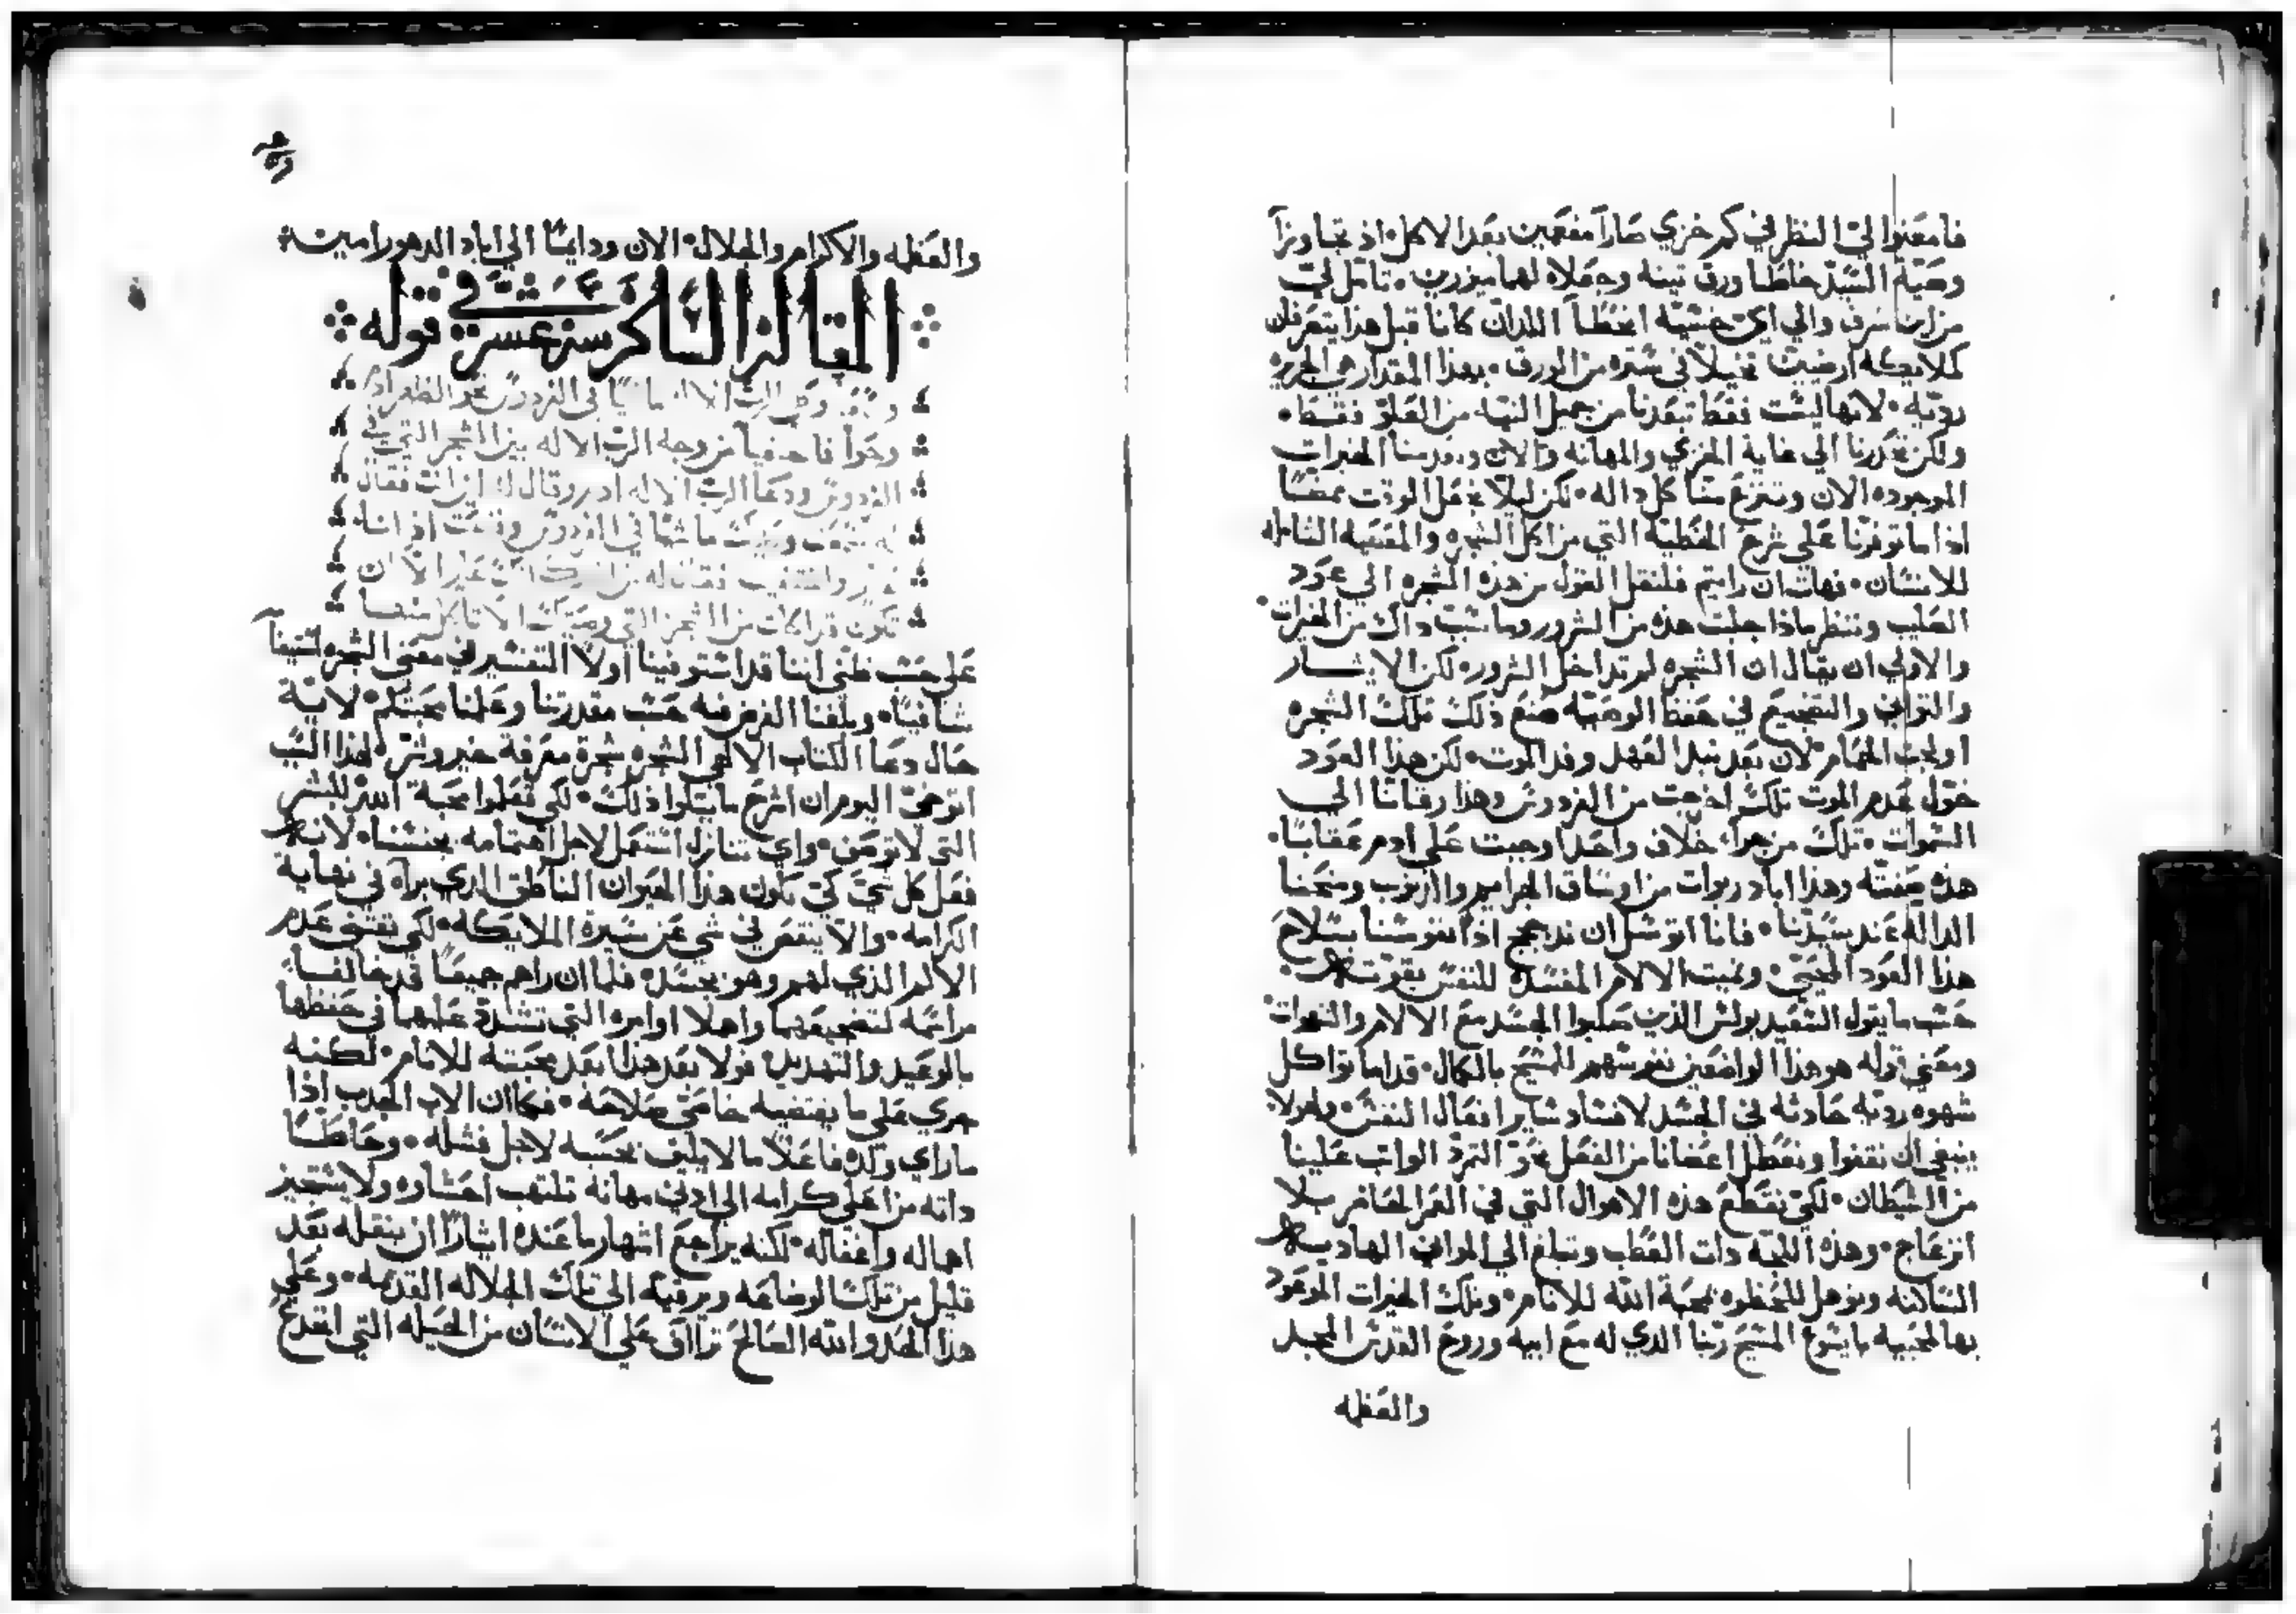 فامعنوا لي النظر في كم خزي صارا مفعمين بعد الاكل اذ تجاوزا
وصية السيد خاطا ورق تينه وجعلاه لهما ميزرين تامل لي
من اين سرف والي اي خسيسه انحطا اللدان كانا قبل هذا يتصرفان
كملايكه ارضيين في ستره من الورق بهذا المقدار هي الجريره
رديه لانها ليست فقط تبعدنا من جميل النيه من العلو فقط
ولكن تحدرنا الي غاية الخزي والمهانه والان الخيرات
الموجوده الان وتنتزع منا كل داله لكن ليلا نجعل الوقت ممضا
اذا ما توفرنا علي شرح الخطيه التي من اكل الشجره والمعصيه الشامله
للانسان فهات ان رايتم فلننقل القول من هذه الشجره الي عود
الصليب وننظر ماذا جلبت هذه من الشرور وما سبب داك من الخيرات
والاولي ان يقال ان الشجره لم تداخل الشرور لكن الايثار
والتواني والتضجيع في حفظ الوصيه صنع ذلك تلك الشجره
اولجت الحمام لان بعد نبد العهد وفد الموت لكن هذا العود
خول عدم الموت تلك اخرجت من الفردوس وهذا رقانا الي
السموات تلك من جراء خلاف واحد اوجبت علي ادم عقابا
هذه صفته وهذا اباد ربوات من اوساق الجرايم والذنوب ومنحنا
الداله عند سيدنا فانا اتوسل ان ندجج اذا نفوسنا بسلاح
هذا العود المحيي ونميت الالام المفسده للنفس بقوته
حسب ما يقول السعيد بولس الذين صلبوا الجسد مع الالام والشهوات
ومعني قوله هو هذا الواضعين نفوسهم للمسيح بالكمال قد اماتوا كل
شهوه رديه حادثه في الجسد لافساد ساير افعال النفس ولهولا
ينبغي ان نقتفوا ونعطل اعضانا من الفعل نحو التمرد الواثب علينا
من الشيطان لكي نقطع هذه الاهوال التي في العمر الحاضر بلا
انزعاج وهذه اللجه دات العطب ونبلغ الي الموانى الهاديه
الساكنه ونوهل للحظوه بمحبة الله للانام وتلك الخيرات الموعود
بها لمحبيه بايسوع المسيح ربنا الدي له مع ابيه وروح القدس المجد
والعظمه
والعظمه والاكرام والجلال الان ودايما الي اباد الدهور امين
المقاله السابعه عشر في قوله
وسمعا وطي الرب الاله ماشيا في الفردوس نحو الظهر ادم
وحوا فاختفيا من وجه الرب الاله بين الشجر التي في
الفردوس ودعا الرب الاله ادم وقال له اين انت فقال
له سمعت وطيك ماشيا في الفردوس وخفت اذ انا
عريان واختفيت فقال له من اخبرك انك عريان الا ان
تكون قد اكلت من الشجره التي وصيتك الا تاكل منها
علي حسب ظني اننا قد استوفينا اولا التفسير في معني الشجره استيفاً
شافيا وبلغنا الغرض فيه حسب مقدرتنا وعلمنا محبتكم لاية
حال دعا الكتاب الالاهي الشجره شجرة معرفة خير وشر لهذا السبب
اتوخى اليوم ان اشرح ما يتلوا ذلك لكي تعلموا محبة الله للبشر
التي لا توصف واي تنازل استعمل لاجل اهتمامه بجنسنا لانه
فعل كل شي كي يكون هذا الحيوان الناطق الدي براه في نهاية
الكرامه والا ينقص في شي عن سيرة الملايكه لكي يقتني عدم
الالم الذي لهم وهو بجسد فلما ان راهم جميعا قد خالفا
مراسمه لتضجيعهما واهلا اوامره التي تشدد عليهما في حفظها
بالوعيد والتهديد فولا بعد هذا بعد محبته للانام لكنه
جري علي ما يقتضيه خاصتي صلاحه فكما ان الاب الحدب اذا
ما راي ولده فاعلا ما لا يليق بحسبه لاجل فشله وحاططا
داته من اعلى كرامه الي ادني مهانه تلتهب احشاوه ولا يستجيز
اهماله واغفاله لكنه يراجع اشهار ما عنده ايثارا ان ينقله بعد
قليل من تلك الوضاعه ويرقيه الي تلك الجلاله القديمه وعلي
هذا الحدو الله الصالح تراف علي الانسان من الحيله التي انخدع